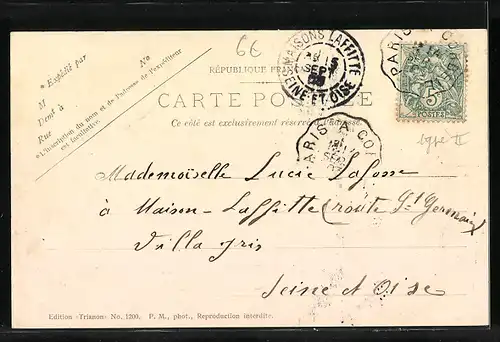 6€
* Expédié par
No
M
Demt à
Rue
* L'inscription du nom et de l'adresse de l'expéditeur
est facultative.
MAISONS LAFFITTE
SEPT
SEINE-ET-OISE
RÉPUBLIQUE FRANÇAISE
CARTE POSTALE
Ce côté est exclusivement réservé à l'adresse.
PARIS
5
POSTES
type II
PARIS A CO
SEPT
Mademoiselle Lucie Lafosse
à Maison-Laffitte (route St Germain)
Villa Gris
Seine et Oise
Edition «Trianon» No. 1200. P. M., phot., Reproduction interdite.